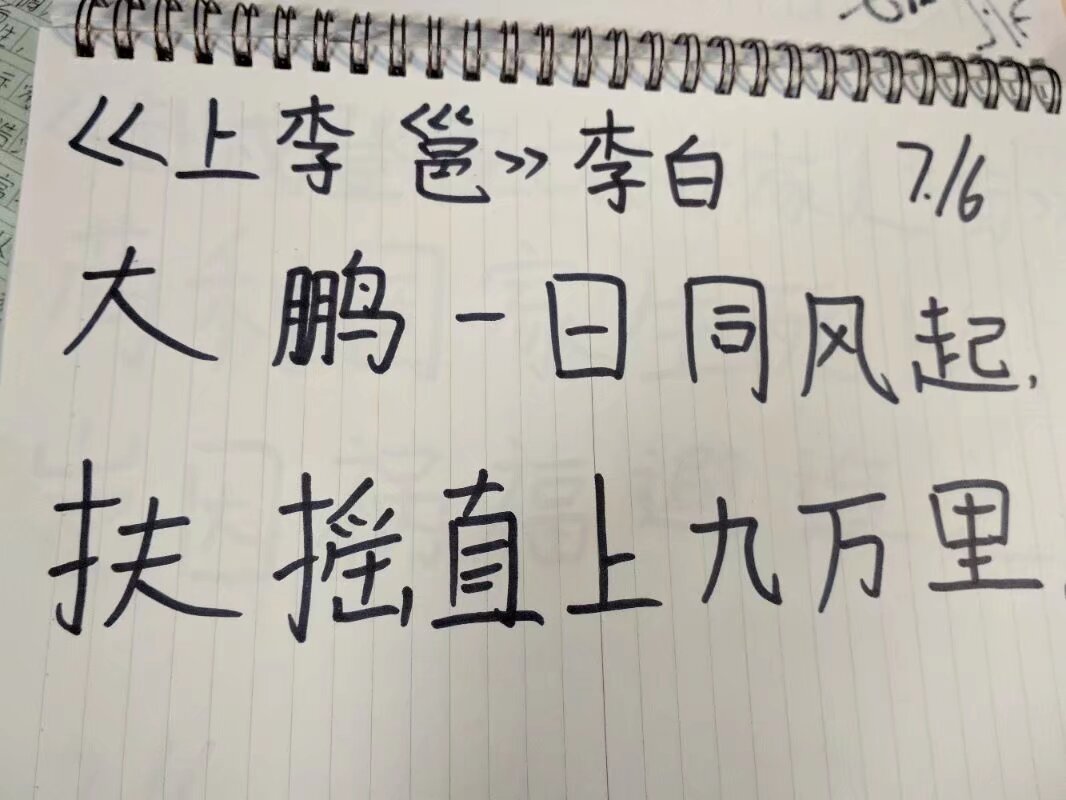 《上李邕》李白 7.16
大鹏一日同风起,
扶摇直上九万里.